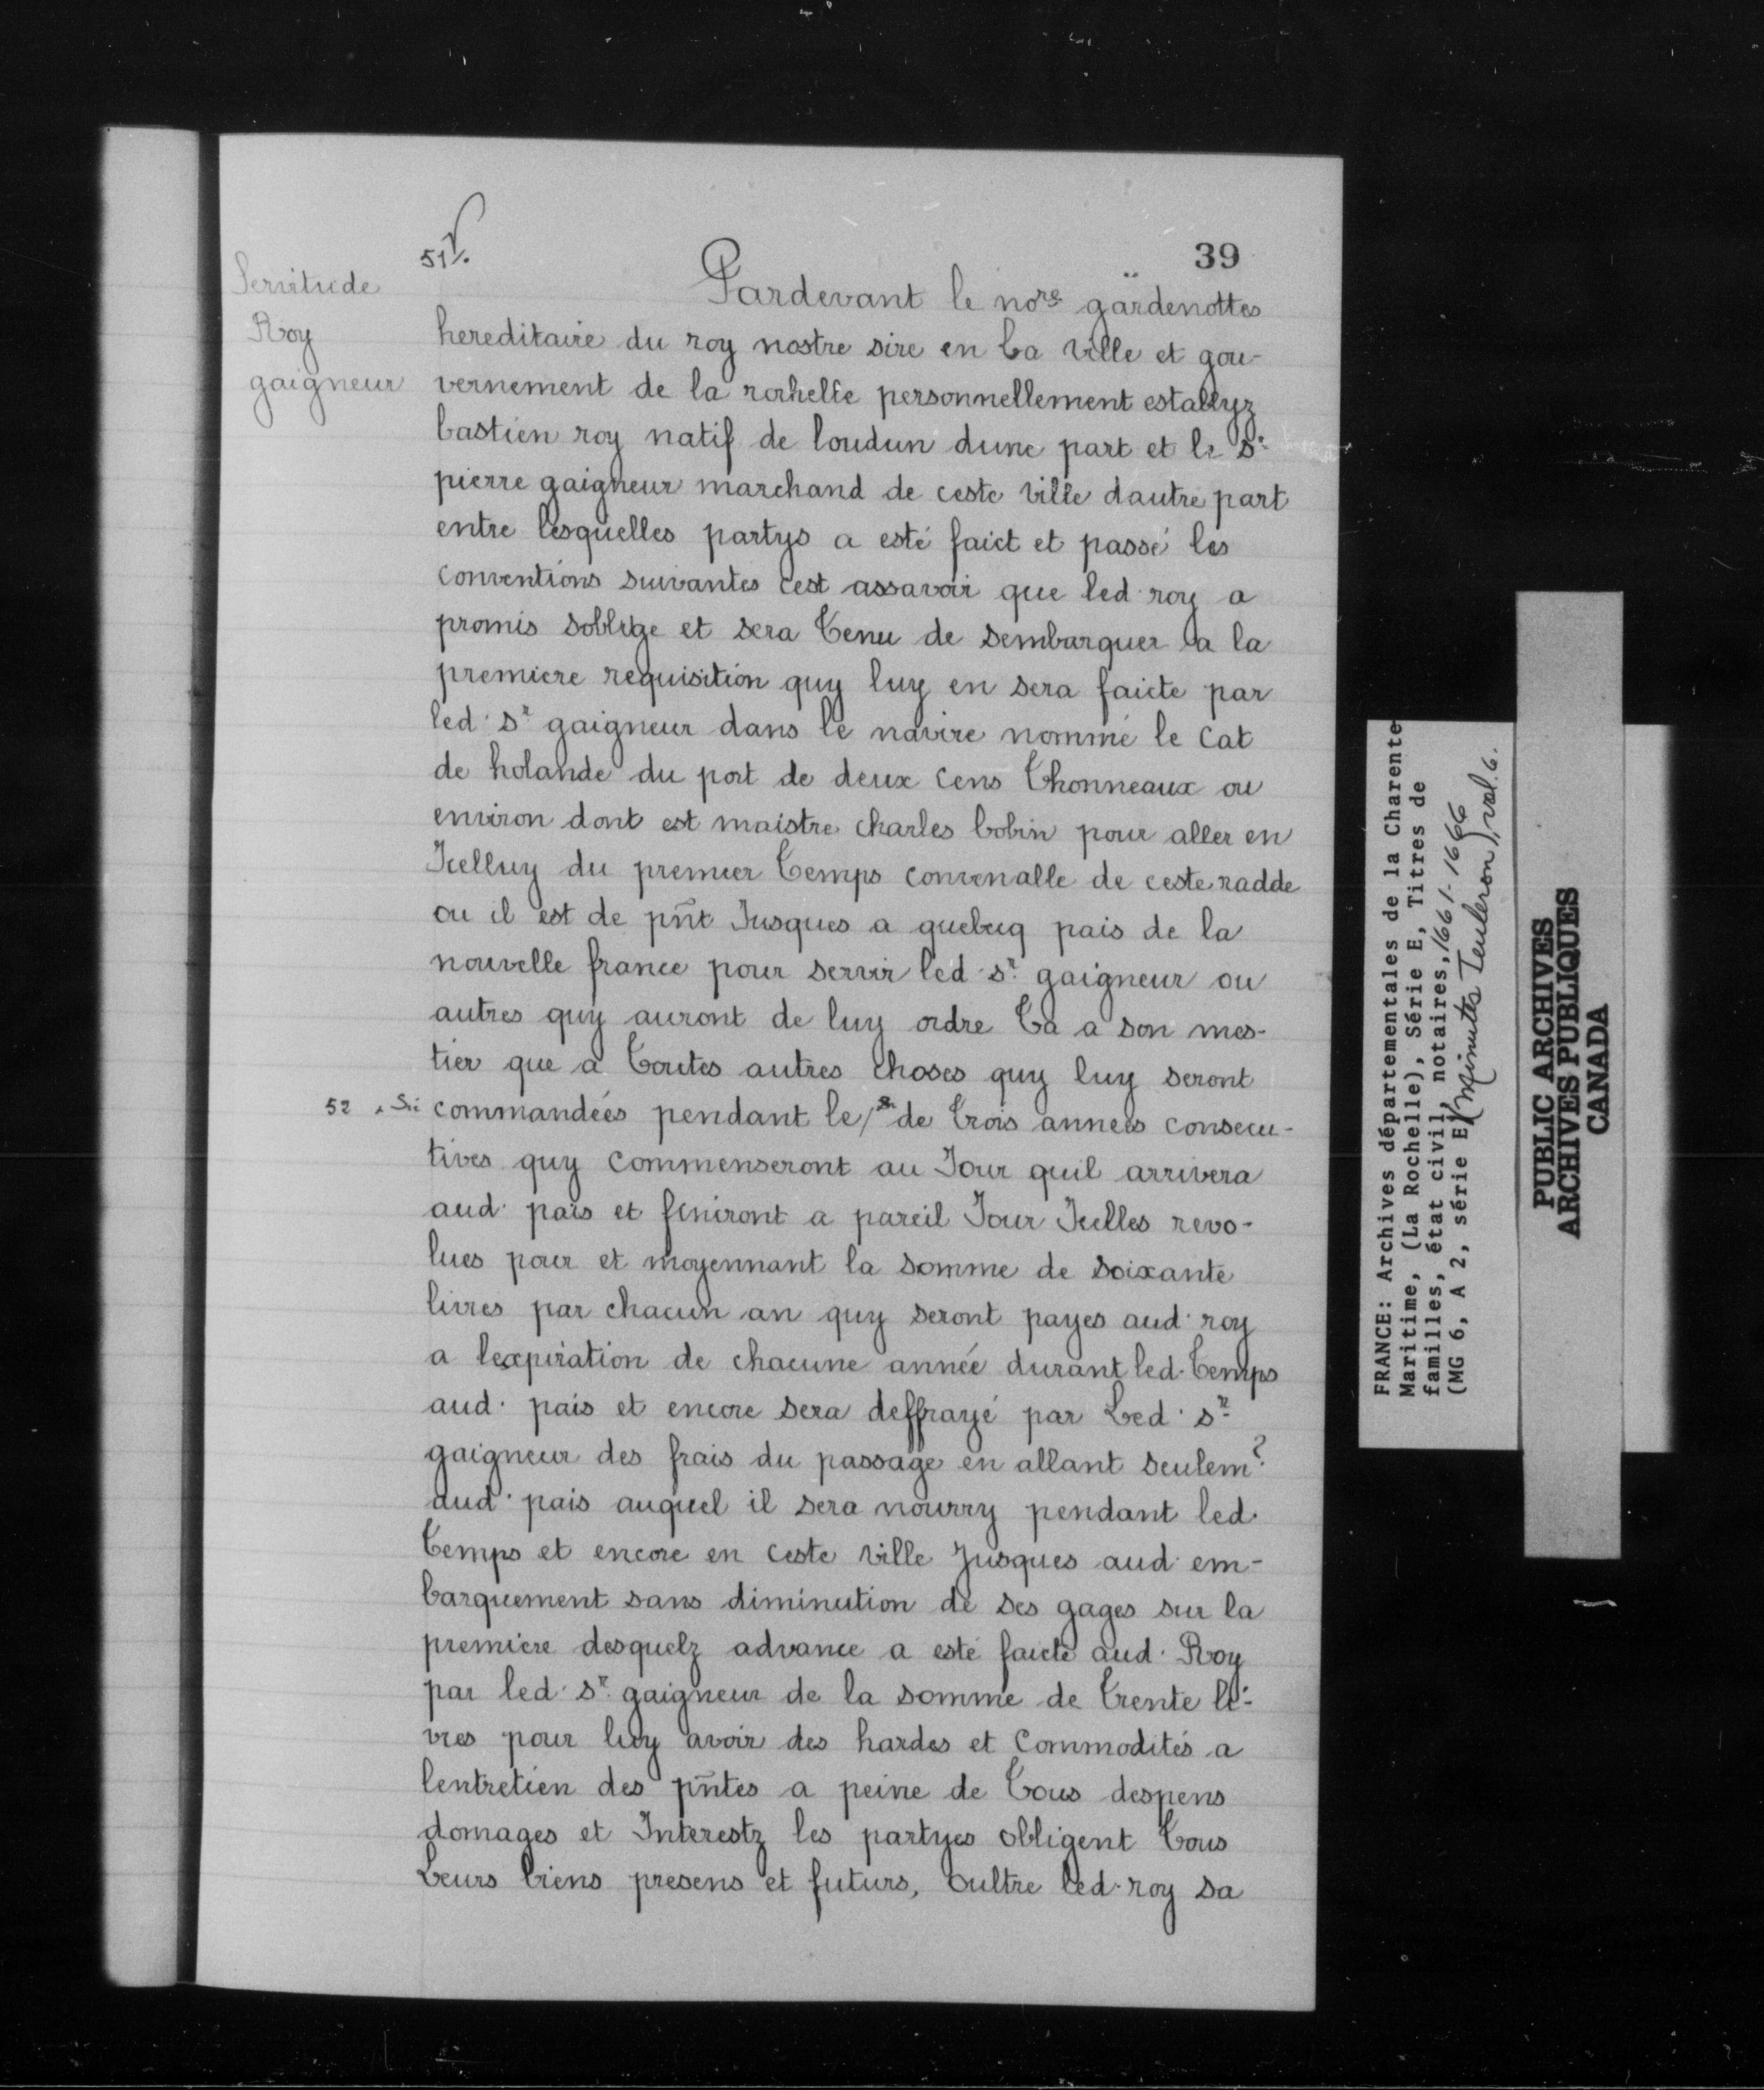 51
39
Servitude
Roy
gaigneur
Pardevant le nore gardenottes
hereditaire du roy nostre sire en la ville et gou-
vernement de la rochelle personnellement establyz
bastien roy natif de loudun dune part et le sr
pierre gaigneur marchand de ceste ville dautre part
entre lesquelles partys a esté faict et passé les
conventions suivantes cest assavoir que led. roy a
promis soblige et sera tenu de sembarquer a la
premiere requisition quy luy en sera faicte par
led. sr gaigneur dans le navire nommé le cat
de holande du port de deux cens thonneaux ou
environ dont est maistre charles bobin pour aller en
Icelluy du premier temps convenalle de ceste radde
ou il est de pñt Jusques a quebeq pais de la
nouvelle france pour servir led. sr. gaigneur ou
autres quy auront de luy ordre ta a son mes-
tier que a toutes autres choses quy luy seront
52 Sic commandées pendant le de trois annees consecu-
tives quy commenseront au Jour quil arrivera
aud. pais et finiront a pareil Jour Icelles revo-
lues pour et moyennant la somme de soixante
livres par chacun an quy seront payes aud. roy
a lexpiration de chacune année durant led. temps
aud. pais et encore sera deffrayé par Led. sr
gaigneur des frais du passage en allant seulemt
aud. pais auquel il sera nourry pendant led.
temps et encore en ceste ville Jusques aud. em-
barquement sans diminution de ses gages sur la
premiere desquelz advance a esté faicte aud. Roy
par led. sr. gaigneur de la somme de trente li-
vres pour luy avoir des hardes et commodités a
lentretien des pñtes a peine de tous despens
domages et Interestz les partyes obligent tous
Leurs biens presens et futurs, oultre led. roy sa
FRANCE: Archives départementales de la Charente
Maritime, (La Rochelle), Série E, Titres de
familles, état civil, notaires, 1661-1666
(MG 6, A 2, série E) (Minutes Teuleron), vol. 6.
PUBLIC ARCHIVES
ARCHIVES PUBLIQUES
CANADA